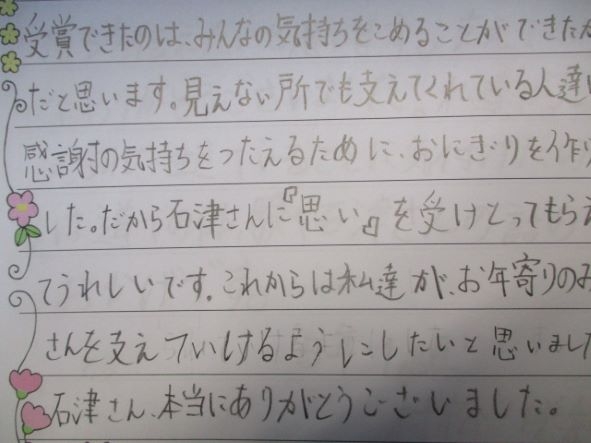 受賞できたのは、みんなの気持ちをこめることができたか
だと思います。見えない所でも支えてくれている人達
感謝の気持ちをつたえるために、おにぎりを作り
した。だから石津さんに『思い』を受けとってもらえ
てうれしいです。これからは私達が、お年寄りのみ
さんを支えていけるようにしたいと思いました
石津さん、本当にありがとうございました。